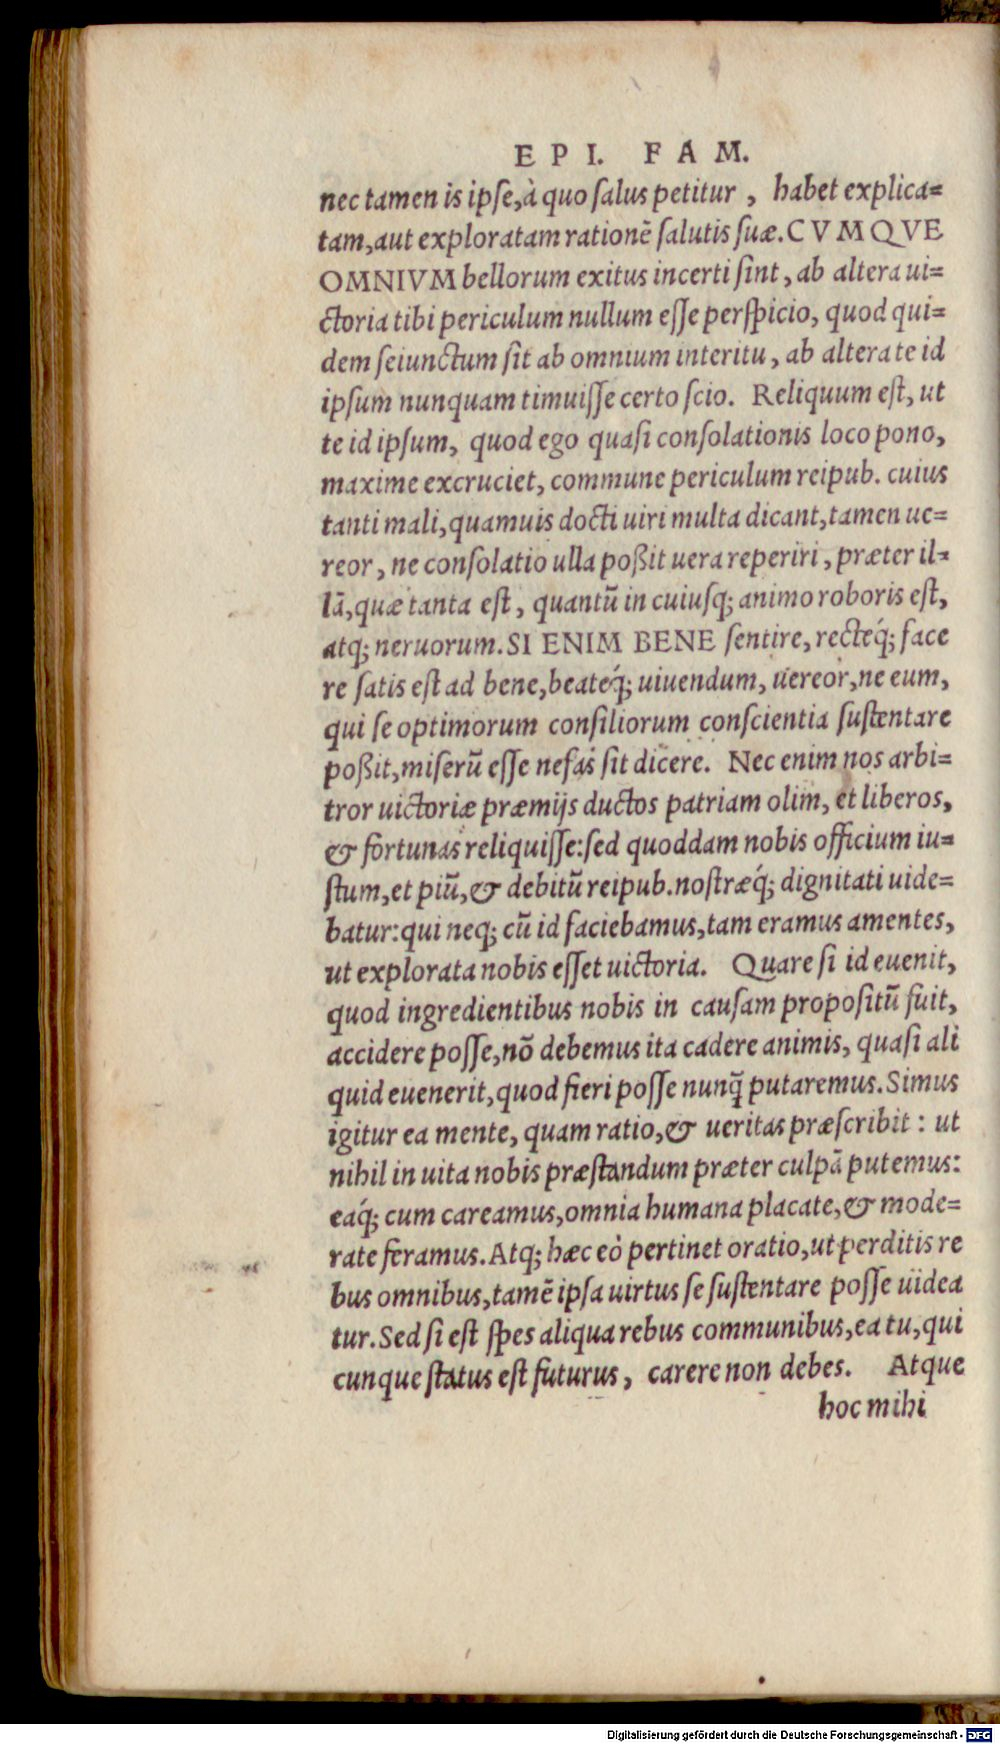 EPI. FAM.
nec tamen is ipſe,à quo ſalus petitur , habet explica=
tam,aut exploratam rationē ſalutis ſuæ.CVMQVE
OMNIVM bellorum exitus incerti ſint , ab altera ui=
ctoria tibi periculum nullum eſſe perſpicio, quod qui=
dem ſeiunctum ſit ab omnium interitu , ab altera te id
ipſum nunquam timuiſſe certo ſcio. Reliquum eſt, ut
te id ipſum, quod ego quaſi conſolationis loco pono,
maxime excruciet, commune periculum reipub. cuius
tanti mali,quamuis docti uiri multa dicant,tamen ue=
reor , ne conſolatio ulla poßit uera reperiri , præter il=
lā,quæ tanta eſt , quantū in cuiuſq; animo roboris eſt,
atq; neruorum.SI ENIM BENE ſentire, recteq́; face
re ſatis eſt ad bene,beateq́; uiuendum, uereor,ne eum,
qui ſe optimorum conſiliorum conſcientia ſuſtentare
poßit,miſerū eſſe nefas ſit dicere. Nec enim nos arbi=
tror uictoriæ præmijs ductos patriam olim, et liberos,
& fortunas reliquiſſe:ſed quoddam nobis officium iu=
ſtum,et piū,& debitū reipub.noſtræq́; dignitati uide=
batur:qui neq; cū id faciebamus,tam eramus amentes,
ut explorata nobis eſſet uictoria. Quare ſi id euenit,
quod ingredientibus nobis in cauſam propoſitū fuit,
accidere poſſe,nō debemus ita cadere animis, quaſi ali
quid euenerit,quod fieri poſſe nunq̄ putaremus.Simus
igitur ea mente, quam ratio,& ueritas præſcribit : ut
nihil in uita nobis præſtandum præter culpā putemus:
eaq́; cum careamus,omnia humana placate,& mode=
rate feramus.Atq; hæc eò pertinet oratio,ut perditis re
bus omnibus,tamē ipſa uirtus ſe ſuſtentare poſſe uidea
tur.Sed ſi eſt ſpes aliqua rebus communibus,ea tu,qui
cunque ſtatus eſt futurus , carere non debes. Atque
hoc mihi
Digitalisierung gefördert durch die Deutsche Forschungsgemeinschaft - DFG